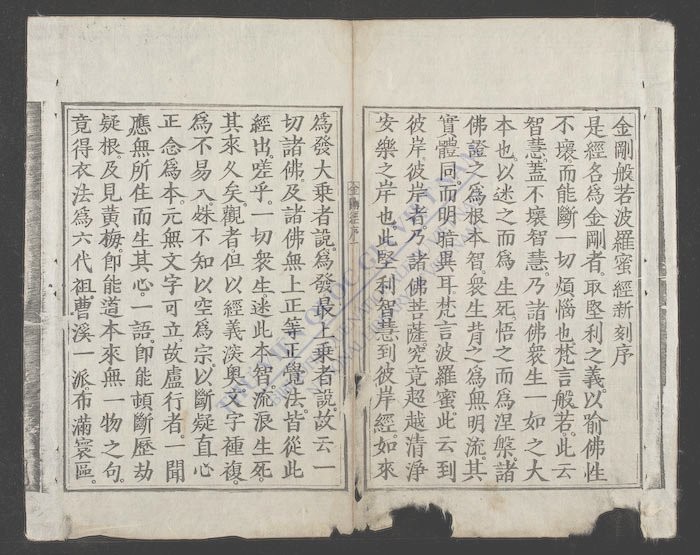 金剛般若波羅蜜經新刻序
是經名爲金剛者。取堅利之義。以喻佛性
不壞而能斷一切煩惱也。梵言般若。此云
智慧。蓋不壞智慧。乃諸佛衆生一如之大
本也。以迷之而爲生死。悟之而爲涅槃。諸
佛證之爲根本智。衆生背之爲無明流。其
實體同。而明暗異耳。梵言波羅蜜。此云到
彼岸。彼岸者。乃諸佛菩薩。究竟超越清淨
安樂之岸也。此堅利智慧。到彼岸經。如來
金剛經序
爲發大乗者說。爲發最上乗者說。故云一
切諸佛。及諸佛無上正等正覺法。皆從此
經出。嗟乎。一切衆生迷此本智。流浪生死。
其來久矣。觀者。但以經義淡奥。文字種複。
爲不易入。姝不知以空爲宗。以斷疑直心
正念爲本。元無文字可立。故盧行者。一聞
應無所住而生其心。一語。即能頓斷歷劫
疑根。及見黃梅。即能道本來無一物之句。
竟得衣法爲六代祖。曹溪一派。布滿寰區。